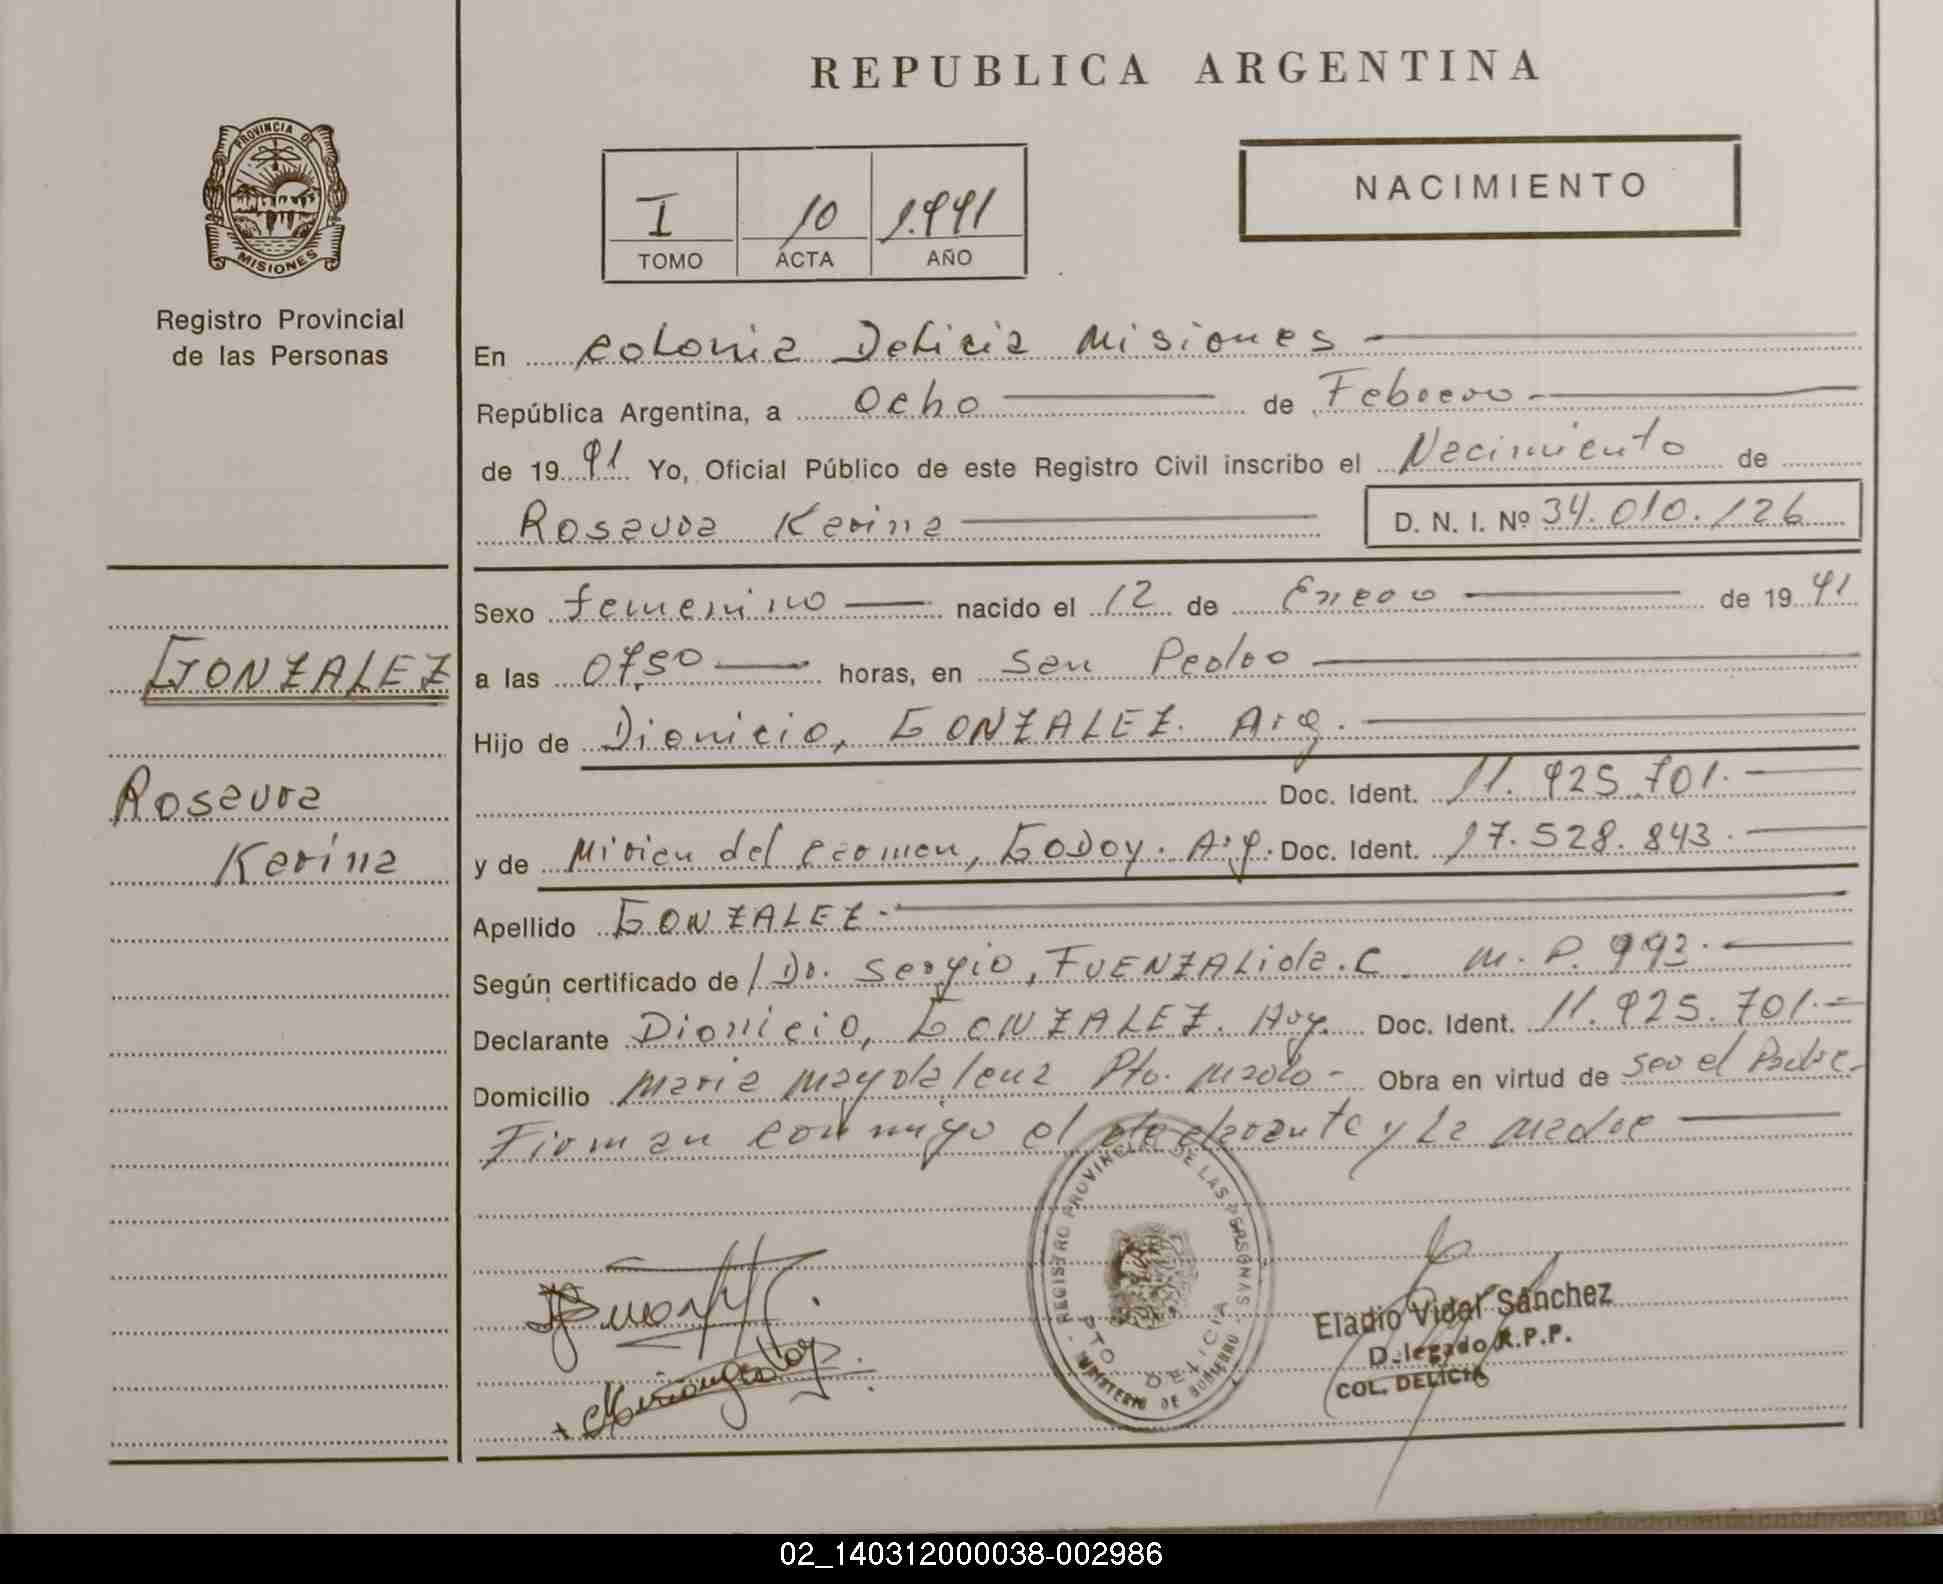 REPUBLICA ARGENTINA
PROVINCIA DE MISIONES
Registro Provincial
de las Personas
I 10 1.991
TOMO ACTA AÑO
NACIMIENTO
En Colonia Delicia Misiones
República Argentina, a Ocho de Febrero
de 1991 Yo, Oficial Público de este Registro Civil inscribo el Nacimiento de
Rosaura Karina D. N. I. Nº 34.010.126
Sexo femenino nacido el 12 de Enero de 1991
a las 07,50 horas, en San Pedro
Hijo de Dionicio, GONZALEZ. Arg.
Doc. Ident. 11.925.701.
y de Mirian del Carmen, GODOY. Arg. Doc. Ident. 17.528.843.
Apellido GONZALEZ.
Según certificado de Dr. Sergio, FUENZALida.C M.P. 993.
Declarante Dionicio, GONZALEZ. Arg. Doc. Ident. 11.925.701.
Domicilio Maria Magdalena Pto. Mado Obra en virtud de ser el Padre
Firman conmigo el declarante y La Madre
GONZALEZ
Rosaura
Karina
REGISTRO PROVINCIAL DE LAS PERSONAS
MINISTERIO DE GOBIERNO
PTO DELICIA
Eladio Vidal Sánchez
Delegado R.P.P.
COL. DELICIA
02_140312000038-002986